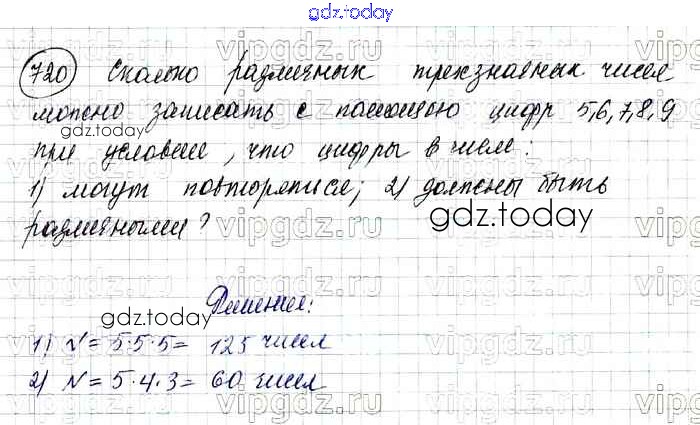 gdz.today
vipgdz.ru vipgdz.ru vipgdz.ru
720 Сколько различных трехзначных чисел
можно записать с помощью цифр 5,6,7,8,9
gdz.today
при условии, что цифры в числе:
1) могут повторяться; 2) должны быть
различными?
gdz.today
Решение:
gdz.today
1) N = 5·5·5 = 125 чисел
2) N = 5·4·3 = 60 чисел
vipgdz.ru vipgdz.ru vipgdz.ru